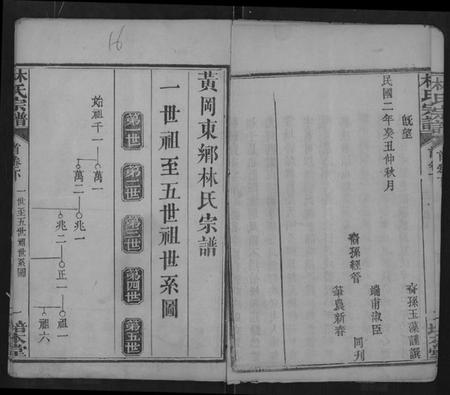 林氏宗譜
旣望
民國二年癸丑仲秋月
裔孫玉藻謹撰
繼甫淑臣
裔孫經管 同刋
華農新春
16
黃岡東鄉林氏宗譜
一世祖至五世祖世系圖
第一世
第二世
第三世
第四世
第五世
始祖千一
萬一
萬二
兆一
兆二
正一
祖一
祖六
林氏宗譜
首卷下
一世至五世祖世系圖
一
培本堂